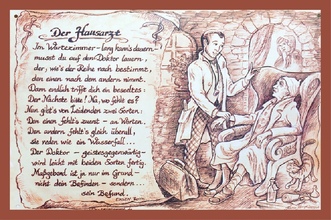 Der Hausarzt
Im Wartezimmer - lang kann's dauern
musst du auf den Doktor lauern,
der, wie's der Reihe nach bestimmt,
den einen nach dem andern nimmt.
Dann endlich trifft dich ein beseeltes:
Der Nächste bitte! Na, wo fehlt es?
Nun gibt's von Leidenden zwei Sorten:
Den einen fehlt's zuerst - an Worten.
Den andern fehlt's gleich überall,
sie reden wie ein Wasserfall...
Der Doktor - geistesgegenwärtig -
wird leicht mit beiden Sorten fertig.
Maßgebend ist ja nur im Grund -
nicht dein Befinden - sondern...
sein Befund.
EUGEN ROTH